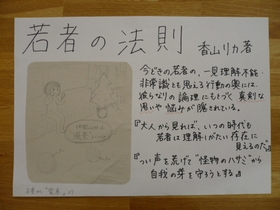 若者の法則
香山リカ著
今どきの若者の、一見理解不能・
非常識とも思える行動の裏には、
彼らなりの論理にもとづく真剣な
思いや悩みが隠されている。
『大人から見れば、いつの時代も
若者は理解しがたい存在に
見えるのだ。』
『つい声を荒げて"怪物のハサミ"から
自我の芽を守ろうとする。』